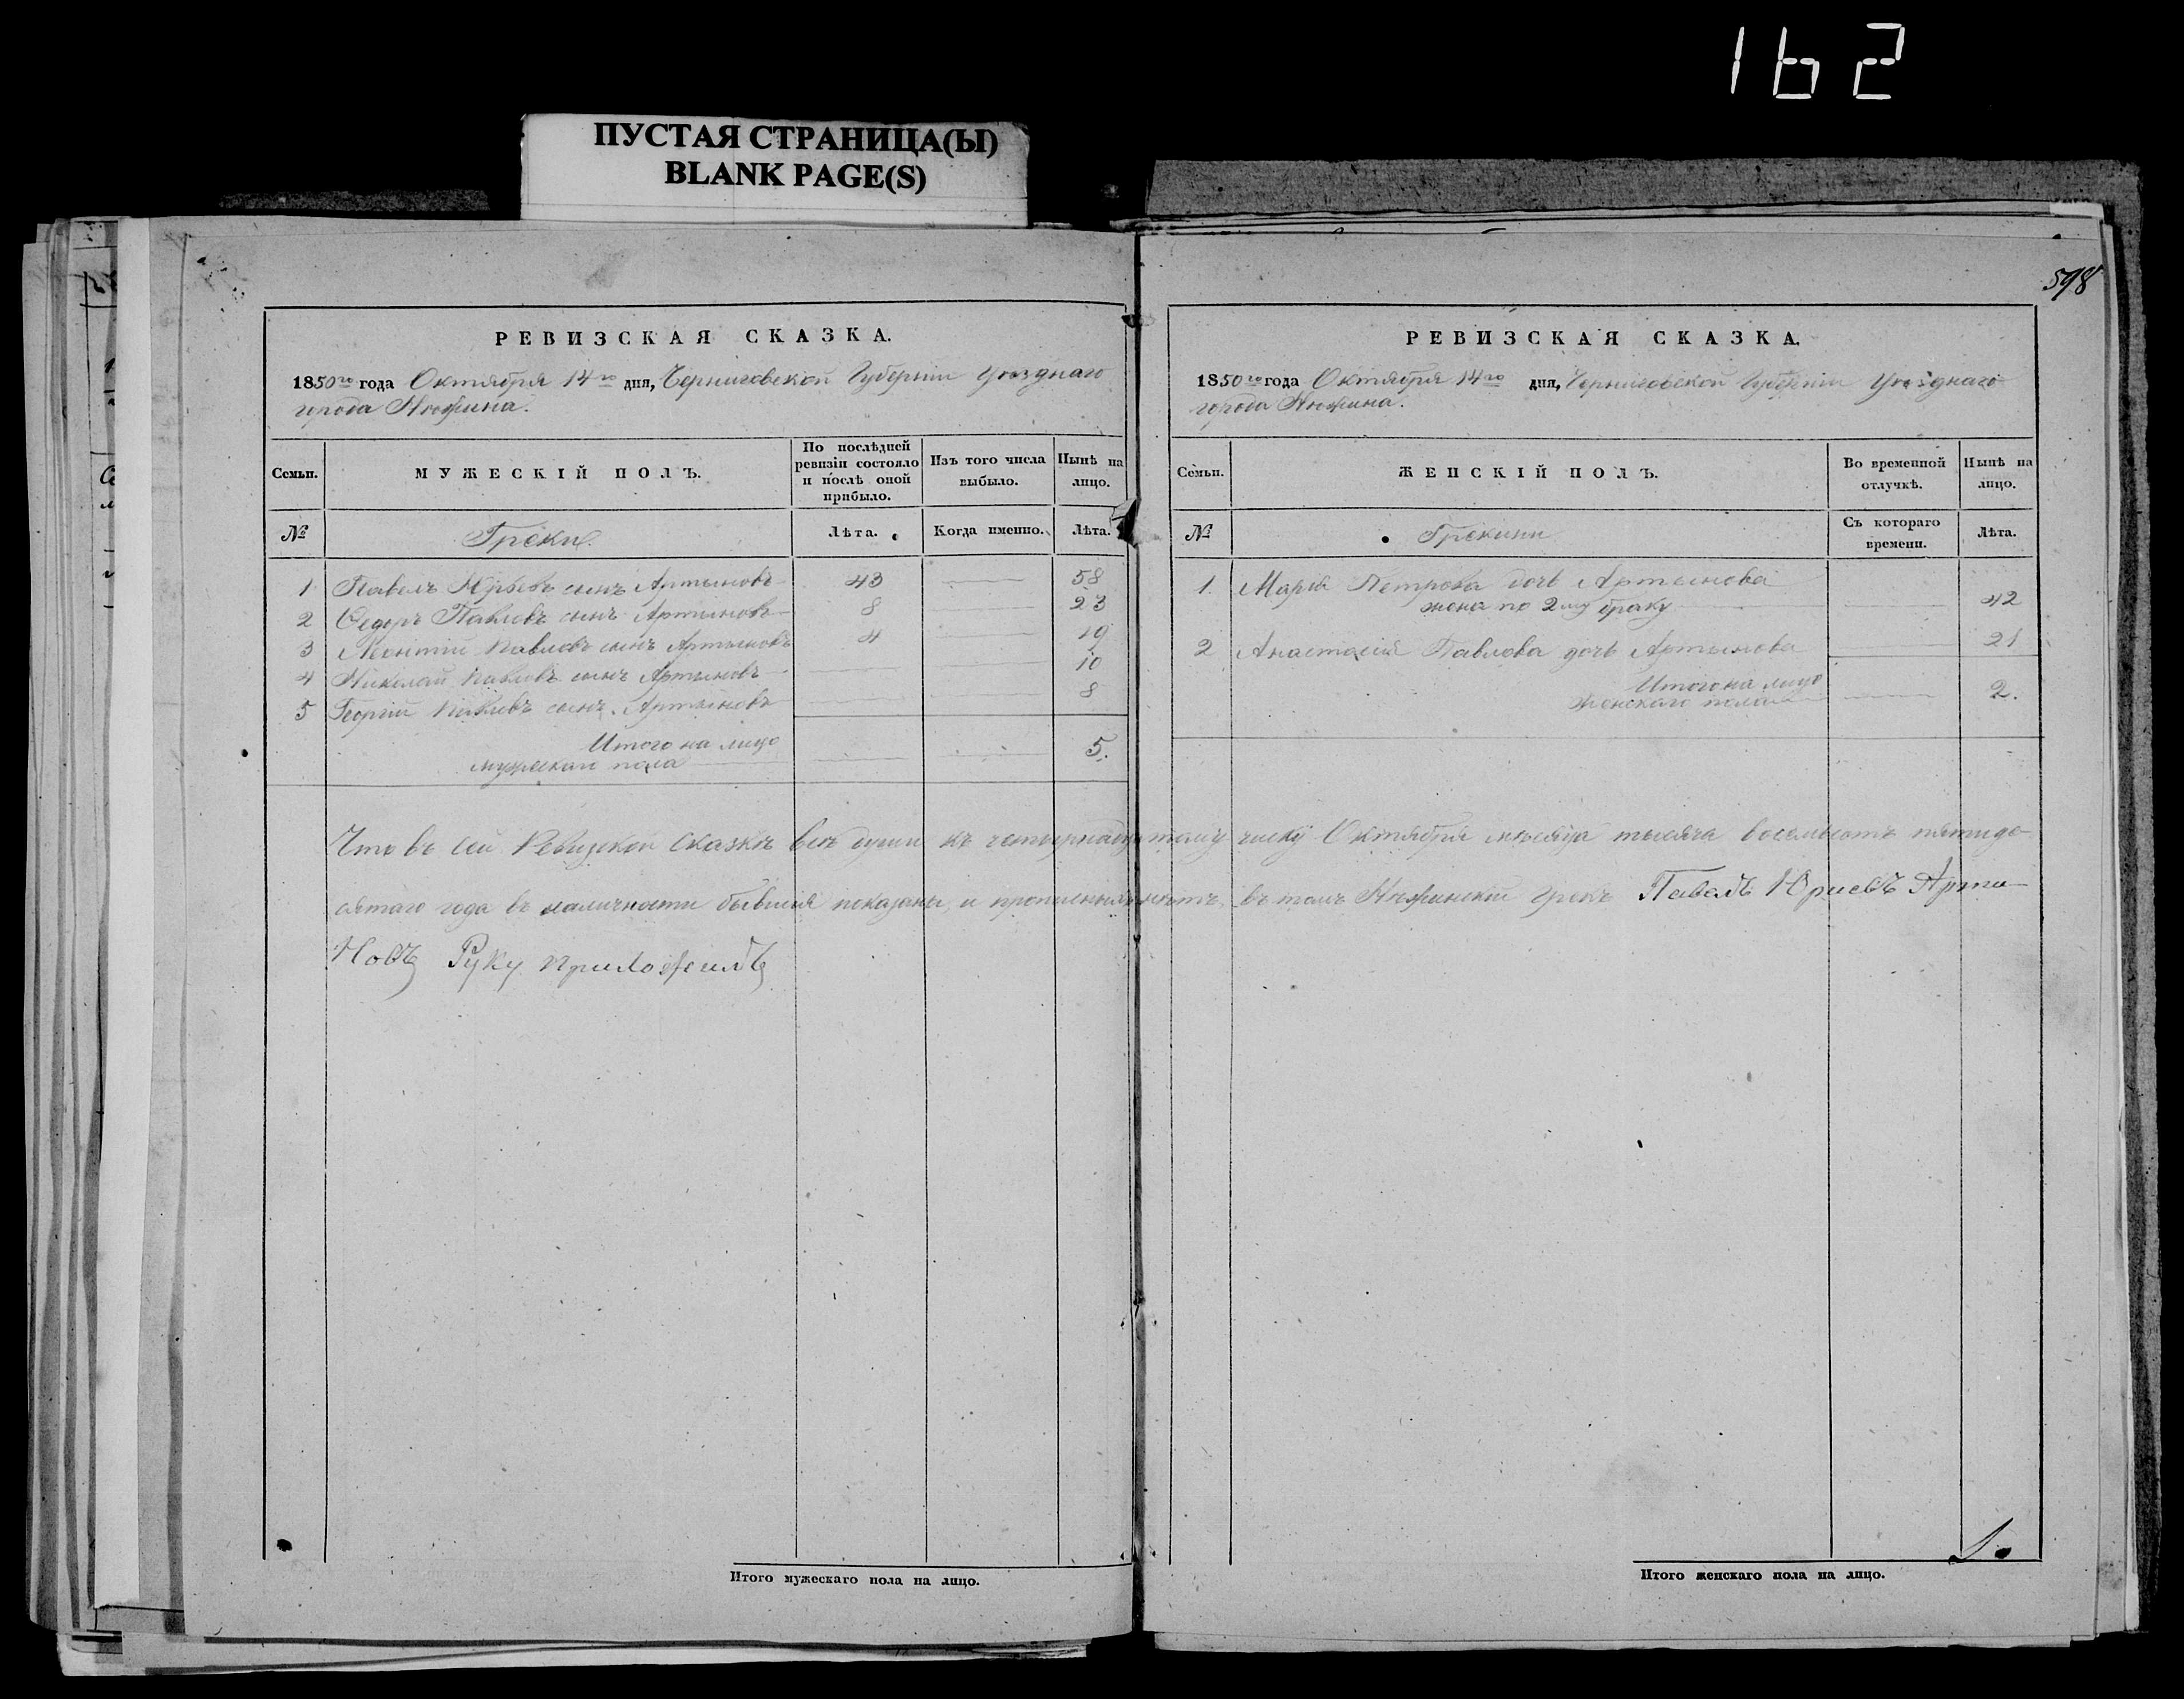 162
ПУСТАЯ СТРАНИЦА(Ы)
BLANK PAGE(S)
РЕВИЗСКАЯ СКАЗКА.
1850го года Октября 14го дня, Черниговской Губернiи Уѣзднаго
города Нѣжина.
Семьи. МУЖЕСКІЙ ПОЛЪ. По послѣдней ревизіи состояло и послѣ оной прибыло. Изъ того числа выбыло. Нынѣ на лицо.
№ Греки. Лѣта. Когда именно. Лѣта.
1 Павелъ Юрьевъ сынъ Артыновъ 43 58
2 Ѳедоръ Павловъ сынъ Артыновъ 8 23
3 Леонтій Павловъ сынъ Артыновъ 4 19
4 Николай Павловъ сынъ Артыновъ 10
5 Георгій Павловъ сынъ Артыновъ 8
Итого на лицо
мужескаго пола 5.
598
РЕВИЗСКАЯ СКАЗКА.
1850го года Октября 14го дня, Черниговской Губерніи Уѣзднаго
города Нѣжина.
Семьи. ЖЕНСКІЙ ПОЛЪ. Во временной отлучкѣ. Нынѣ на лицо.
№ Грекини Съ котораго времени. Лѣта.
1. Марія Петрова дочь Артынова
жена по 2му браку 42
2 Анастасія Павлова дочь Артынова 21
Итого на лицо
женскаго пола 2.
Что въ сей Ревизской Сказкѣ всѣ души къ четырнадцатому числу Октября мѣсяца тысяча восемьсотъ пятиде-
сятаго года въ наличности бывшія показаны, и прописныхъ нѣтъ, въ томъ Нѣжинскій Грекъ Павелъ Юриевъ Арты-
Новъ Руку приложилъ
Итого мужескаго пола на лицо.
Итого женскаго пола на лицо.